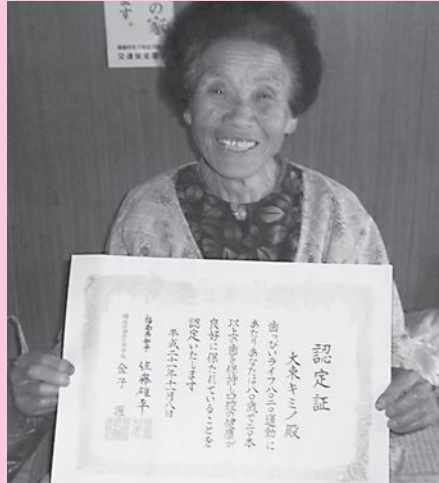 の家
ます。
認定証
大東キミノ殿
歯っぴいライフ八〇二〇運動に
あたりあなたは八〇歳で二〇本
以上の歯を保持し口腔の健康が
良好に保たれていることを
認定いたします
平成二十一年十一月八日
福島県知事 佐藤雄平
金子